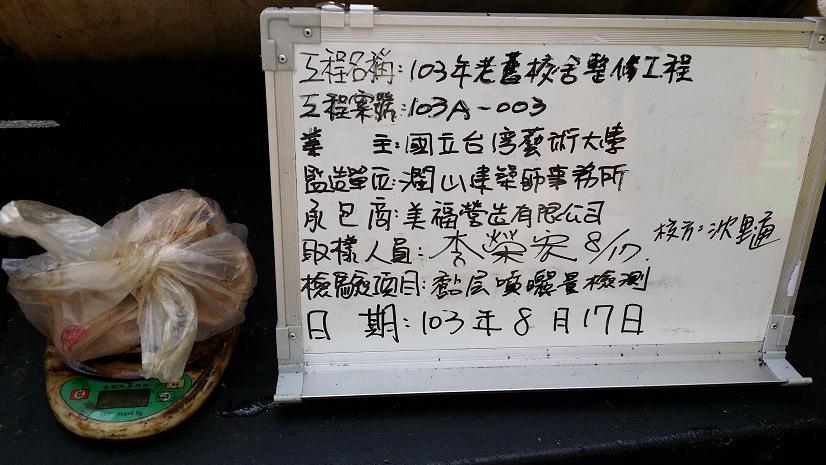 工程名稱:103年老舊校舍整修工程
工程案號:103A-003
業　　主:國立台湾藝術大學
監造單位:潤山建築師事務所
承包商:美福營造有限公司
取樣人員:李榮宗 8/17.
校方:沈里通
檢驗項目:黏层噴曬量檢測
日　期:103年8月17日
2kgx0.5g